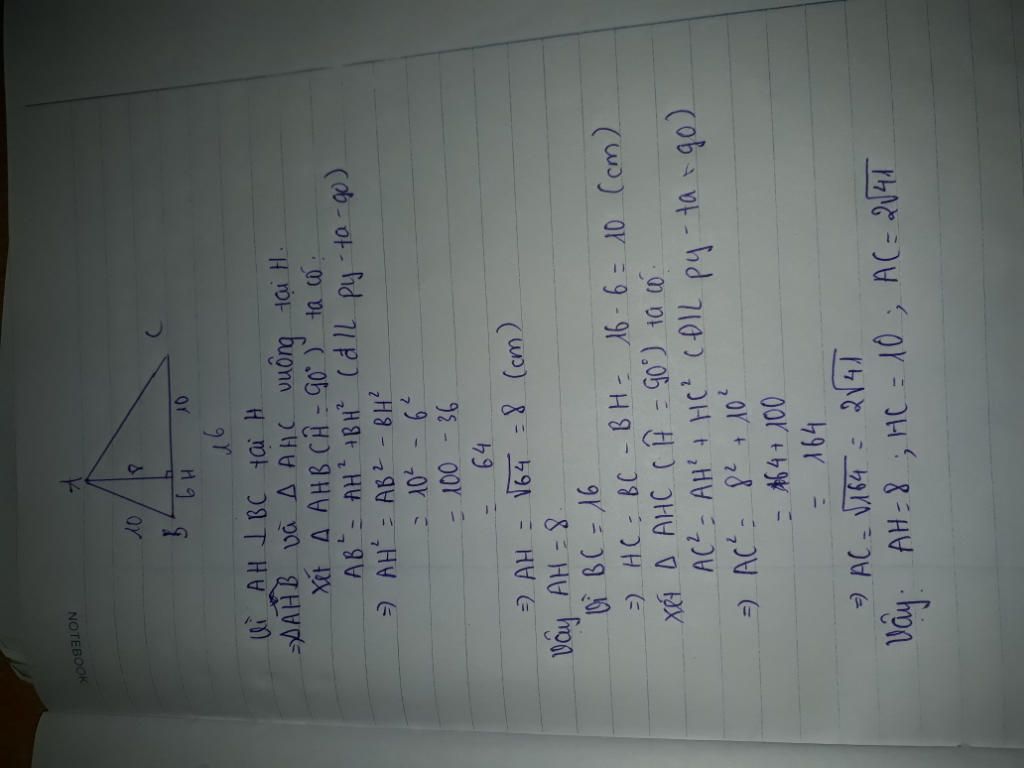 NOTEBOOK
A
10
8
B
6
H
10
C
16
Vì AH ⊥ BC tại H
=> ΔAHB và Δ AHC vuông tại H.
Xét Δ AHB (Ĥ = 90°) ta có:
AB² = AH² + BH² (đ/L py - ta - go)
=> AH² = AB² - BH²
= 10² - 6²
= 100 - 36
= 64
=> AH = √64 = 8 (cm)
Vậy AH = 8.
Vì BC = 16
=> HC = BC - BH = 16 - 6 = 10 (cm)
Xét Δ AHC (Ĥ = 90°) ta có:
AC² = AH² + HC² (Đ/L py - ta - go)
=> AC² = 8² + 10²
= 64 + 100
= 164
=> AC = √164 = 2√41
Vậy: AH = 8 ; HC = 10 ; AC = 2√41